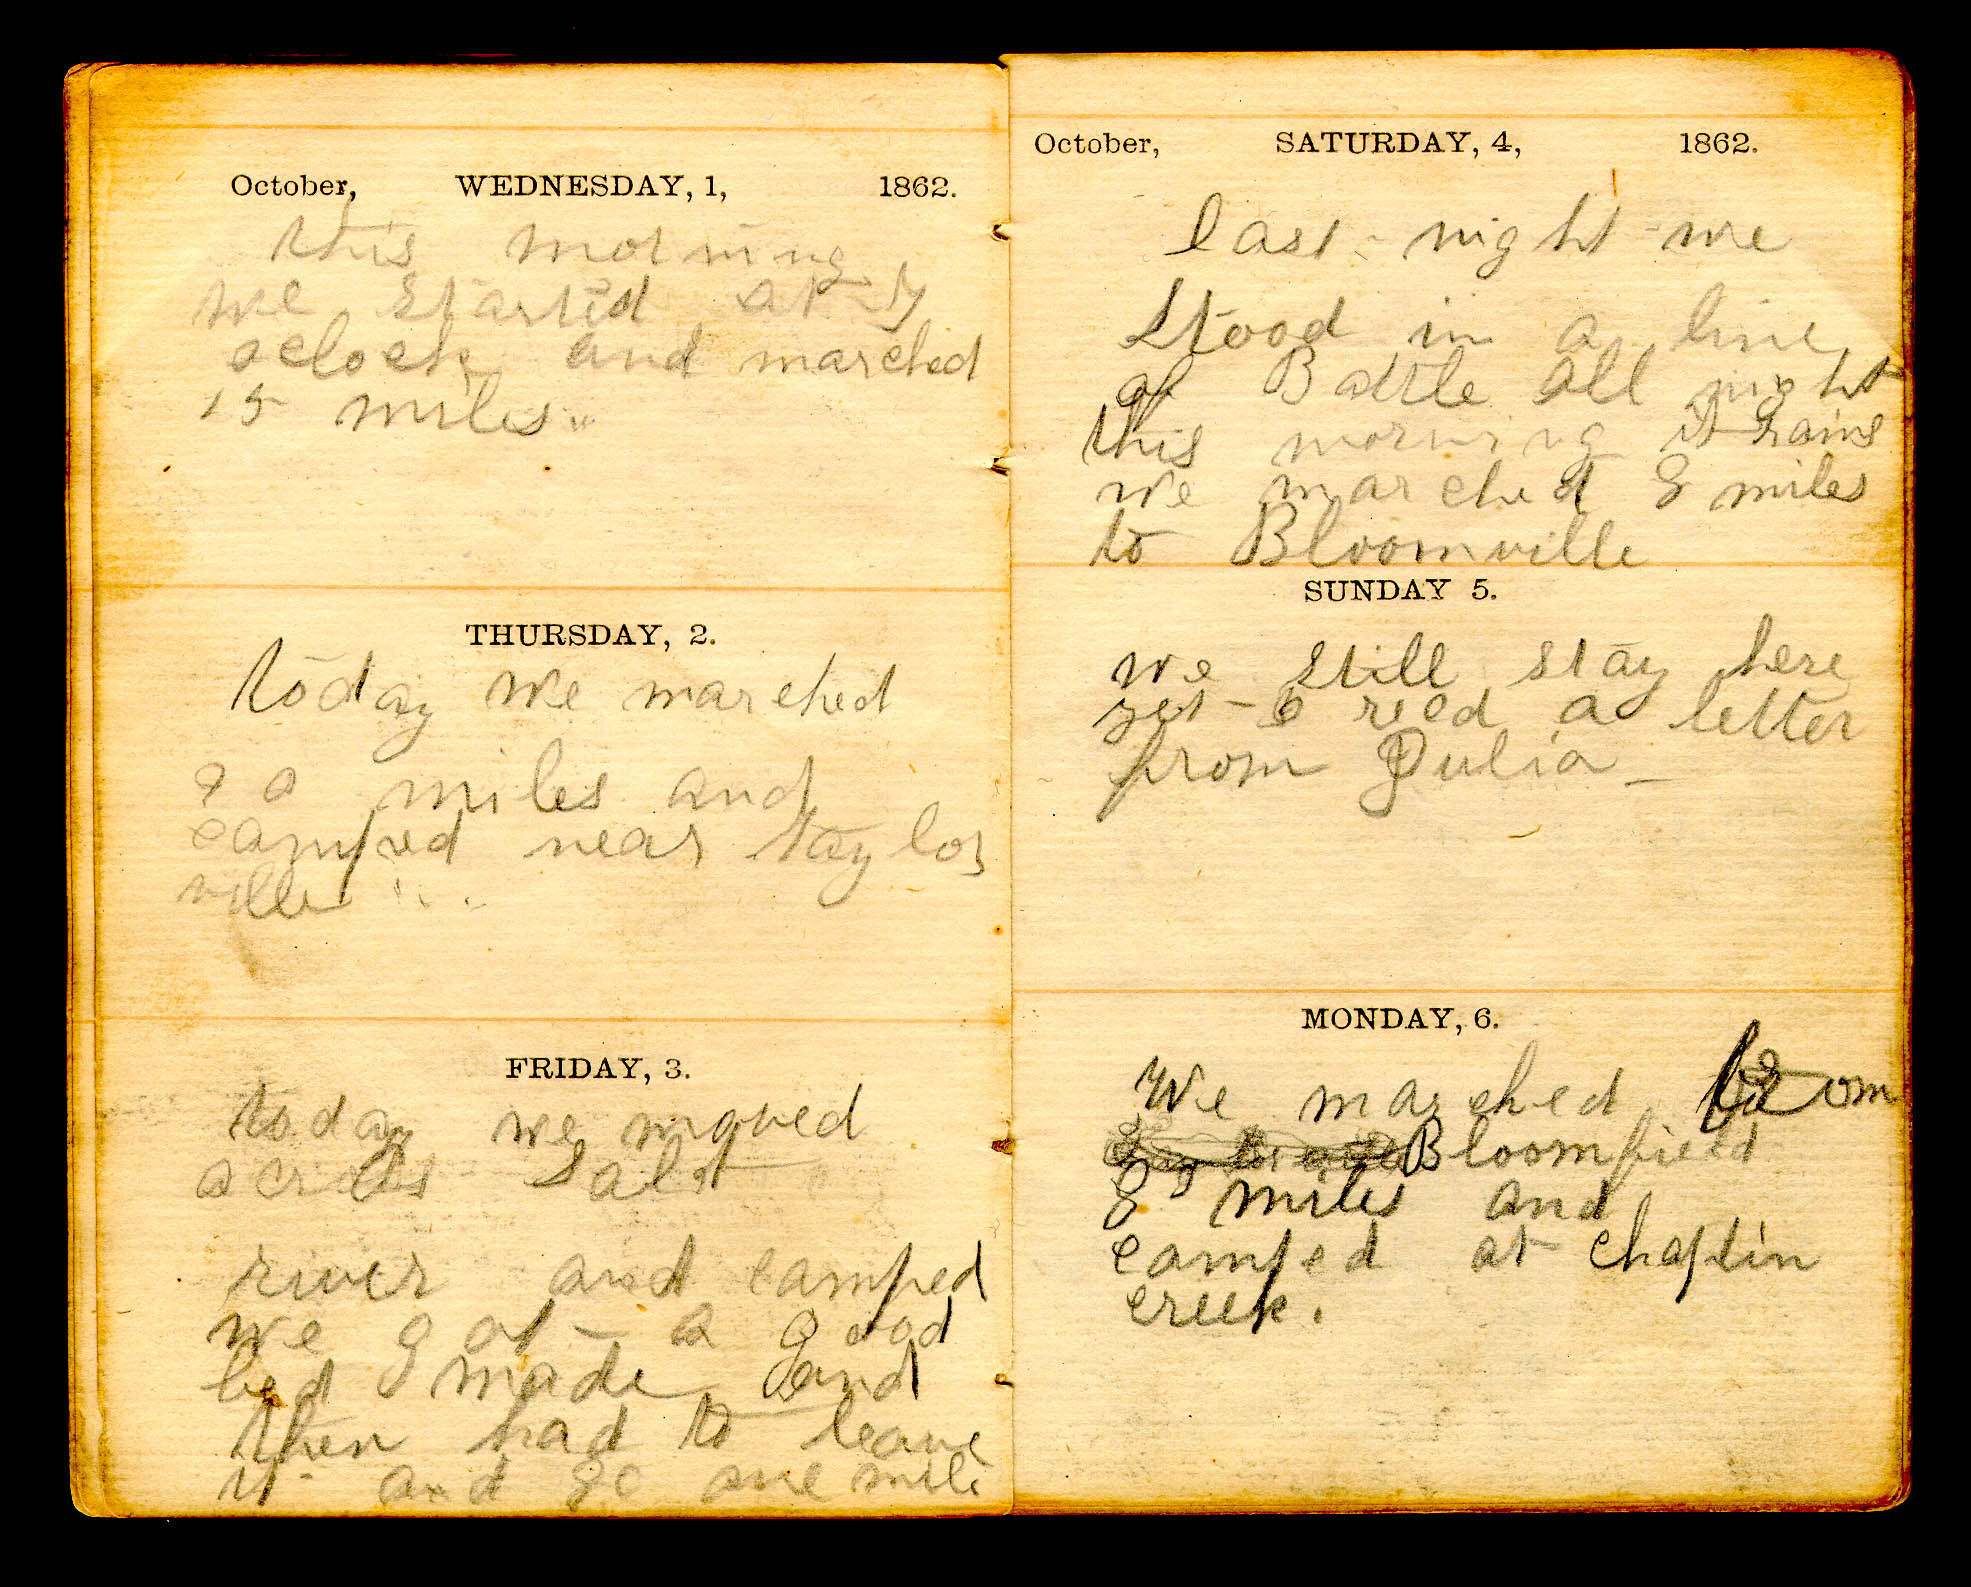 October, WEDNESDAY, 1, 1862.
this morning
we started at 7
oclock and marched
15 miles
THURSDAY, 2.
today we marched
miles and
camped near taylor
ville
FRIDAY, 3.
today we moved
across Salt
river and camped
we got a good
bed made and
then had to leave
it and go one mile
October, SATURDAY, 4, 1862.
last night we
stood in a line
of Battle all night
this morning it rains
we marched 8 miles
to Bloomville
SUNDAY 5.
we still stay here
yet I recd a letter
from Julia
MONDAY, 6.
We marched from
Bloomfield
8 miles and
camped at chaplin
creek.